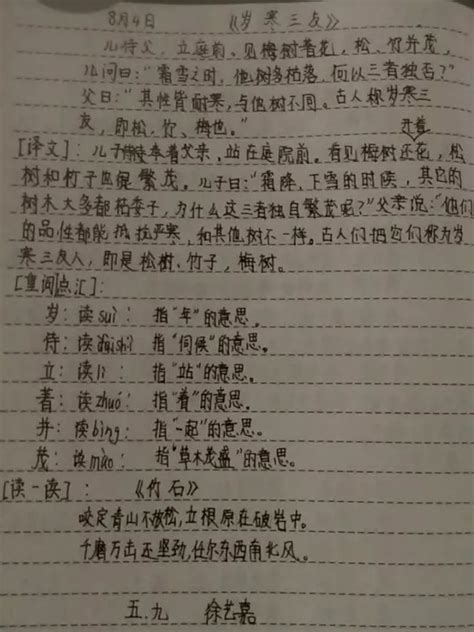 8月4日 《岁寒三友》
儿侍父,立庭前,见梅树著花,松、竹并茂,
儿问曰:"霜雪之时,他树多枯落,何以三者独否?"
父曰:"其性皆耐寒,与他树不同。古人称岁寒三
友,即松、竹、梅也。" 开着
[译文]:儿子奉着父亲,站在庭院前。看见梅树还花,松
树和竹子也很繁茂。儿子曰:"霜降、下雪的时候,其它的
树木大多都枯委子,为什么这三者独自繁茂呢?"父亲说:"他们
的品性都能抵抗严寒,和其他树不一样。古人们把它们称为岁
寒三友人,即是松树、竹子,梅树。
[重词点汇]:
岁:读suì: 指"年"的意思。
侍:读shì 指"伺候"的意思。
立:读lì: 指"站"的意思。
著:读zhuó: 指"着"的意思。
并:读bìng: 指"一起"的意思。
茂:读mào: 指"草木茂盛"的意思。
[读一读]: 《竹石》
咬定青山不放松,立根原在破岩中。
千磨万击还坚劲,任尔东西南北风。
五.九 徐艺嘉